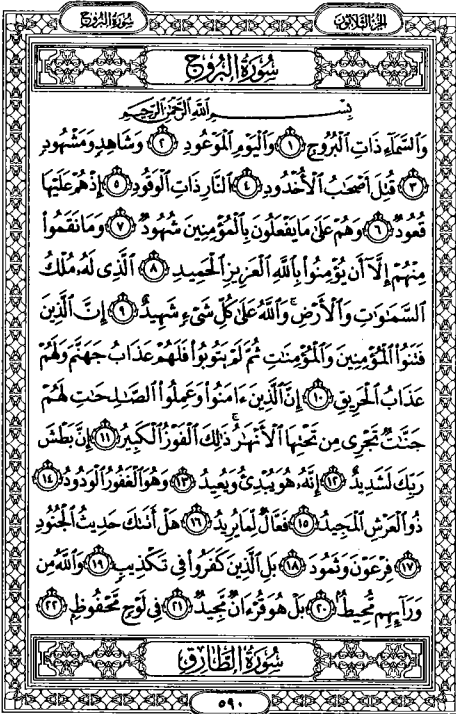 سُورَةُ البُرُوجِ
الجزء الثلاثون
سُورَةُ البُرُوجِ
بِسْمِ ٱللَّهِ ٱلرَّحْمَٰنِ ٱلرَّحِيمِ
وَٱلسَّمَآءِ ذَاتِ ٱلْبُرُوجِ ١ وَٱلْيَوْمِ ٱلْمَوْعُودِ ٢ وَشَاهِدٍ وَمَشْهُودٍ
٣ قُتِلَ أَصْحَٰبُ ٱلْأُخْدُودِ ٤ ٱلنَّارِ ذَاتِ ٱلْوَقُودِ ٥ إِذْ هُمْ عَلَيْهَا
قُعُودٌ ٦ وَهُمْ عَلَىٰ مَا يَفْعَلُونَ بِٱلْمُؤْمِنِينَ شُهُودٌ ٧ وَمَا نَقَمُوا۟
مِنْهُمْ إِلَّآ أَن يُؤْمِنُوا۟ بِٱللَّهِ ٱلْعَزِيزِ ٱلْحَمِيدِ ٨ ٱلَّذِى لَهُۥ مُلْكُ
ٱلسَّمَٰوَٰتِ وَٱلْأَرْضِ ۚ وَٱللَّهُ عَلَىٰ كُلِّ شَىْءٍ شَهِيدٌ ٩ إِنَّ ٱلَّذِينَ
فَتَنُوا۟ ٱلْمُؤْمِنِينَ وَٱلْمُؤْمِنَٰتِ ثُمَّ لَمْ يَتُوبُوا۟ فَلَهُمْ عَذَابُ جَهَنَّمَ وَلَهُمْ
عَذَابُ ٱلْحَرِيقِ ١٠ إِنَّ ٱلَّذِينَ ءَامَنُوا۟ وَعَمِلُوا۟ ٱلصَّٰلِحَٰتِ لَهُمْ
جَنَّٰتٌ تَجْرِى مِن تَحْتِهَا ٱلْأَنْهَٰرُ ۚ ذَٰلِكَ ٱلْفَوْزُ ٱلْكَبِيرُ ١١ إِنَّ بَطْشَ
رَبِّكَ لَشَدِيدٌ ١٢ إِنَّهُۥ هُوَ يُبْدِئُ وَيُعِيدُ ١٣ وَهُوَ ٱلْغَفُورُ ٱلْوَدُودُ ١٤
ذُو ٱلْعَرْشِ ٱلْمَجِيدُ ١٥ فَعَّالٌ لِّمَا يُرِيدُ ١٦ هَلْ أَتَىٰكَ حَدِيثُ ٱلْجُنُودِ
١٧ فِرْعَوْنَ وَثَمُودَ ١٨ بَلِ ٱلَّذِينَ كَفَرُوا۟ فِى تَكْذِيبٍ ١٩ وَٱللَّهُ مِن
وَرَآئِهِم مُّحِيطٌۢ ٢٠ بَلْ هُوَ قُرْءَانٌ مَّجِيدٌ ٢١ فِى لَوْحٍ مَّحْفُوظٍۭ ٢٢
سُورَةُ الطَّارِقِ
٥٩٠